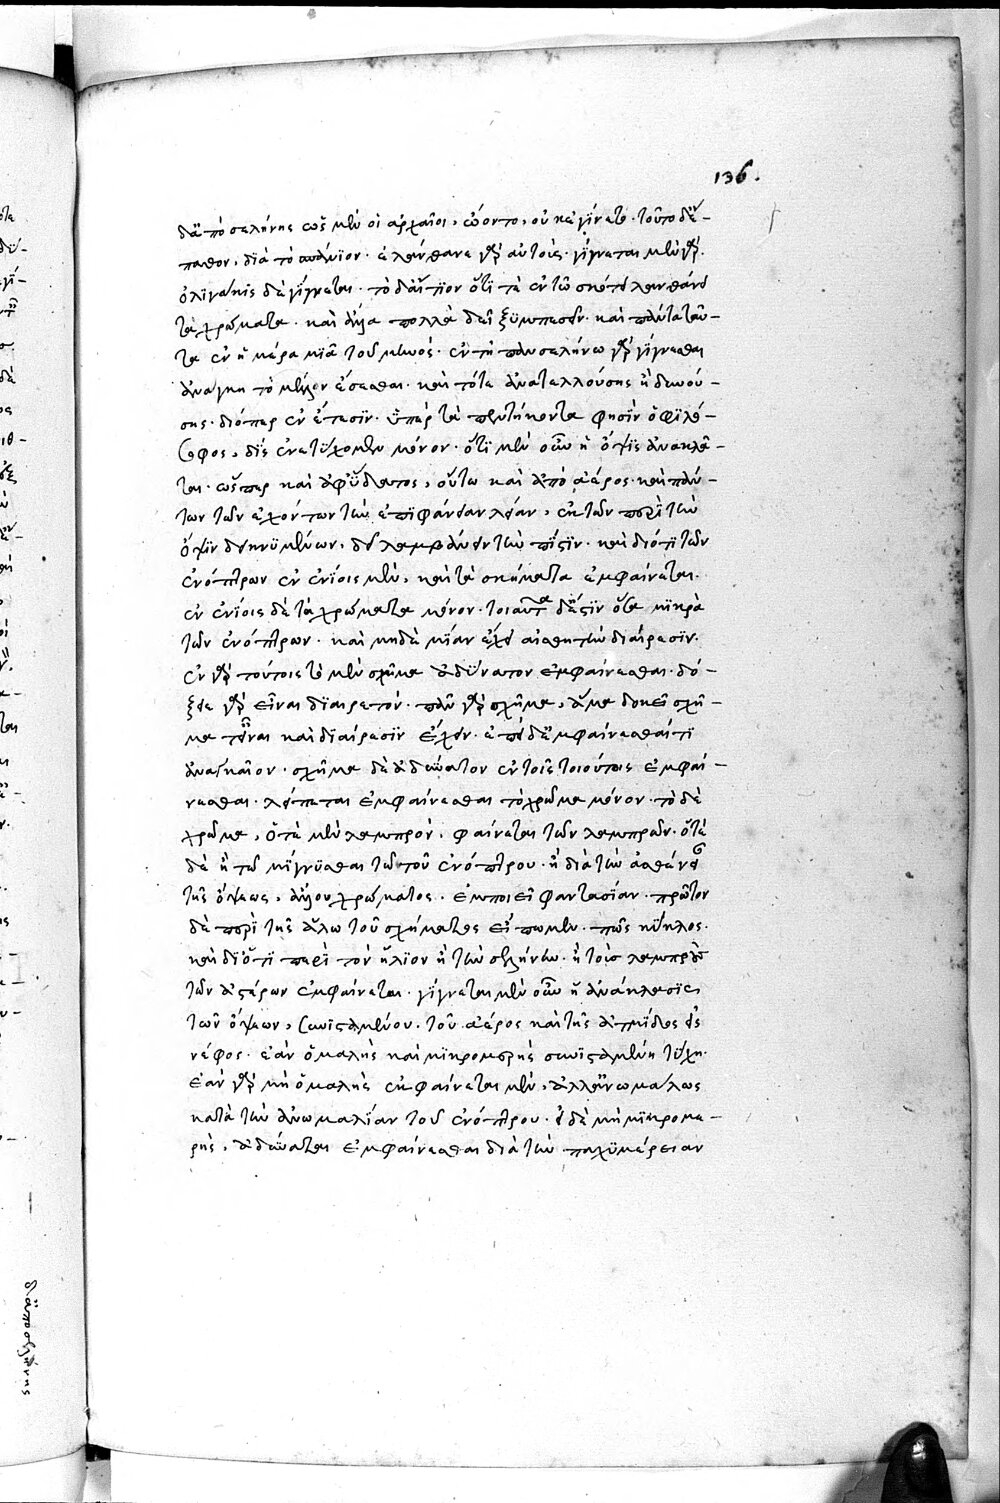 δ' ἀπὸ σελήνης ὡς μὲν οἱ ἀρχαῖοι, ᾤοντο, οὐκ ἐγίνετο. τοῦτο δ' ἔ-
παθον, διὰ τὸ σπάνϊον. ἐλάνθανε γὰρ αὐτούς. γίγνεται μὲν γὰρ.
ὀλιγάκις δὲ γίγνεται. τὸ δ' αἴτϊον ὅτϊ τὲ ἐν τῶ σκότει λανθάνει
τὰ χρώματα. καὶ ἄλλα πολλὰ δεῖ ξϋμπεσεῖν. καὶ πάντα ταῦ-
τα ἐν ἡμέρα μϊᾶ τοῦ μηνός. ἐν τῆ πανσελήνω γὰρ γίγνεσθαι
ἀνάγκη τὸ μέλλον ἔσεσθαι. καὶ τότε ἀνατελλούσης ἢ δυνού-
σης. διόπερ ἐν ἔτεσϊν. ὑπὲρ τὰ πεντήκοντα φησὶν ὁ φϊλό-
σοφος, δὶς ἐνετύχομεν μόνον. ὅτϊ μὲν οὖν ἡ ὄψϊς ἀνακλᾶ-
ται. ὥσπερ καὶ ἀφ' ὕδατος, οὕτω καὶ ἀπὸ ἀέρος. καὶ πάν-
των τῶν ἐχόντων τὴν ἐπϊφάνειαν λείαν, ἐκ τῶν περὶ τὴν
ὄψϊν δεικνϋμένων, δεῖ λαμβάνειν τὴν πίστϊν. καὶ διότϊ τῶν
ἐνόπτρων ἐν ἐνίοις μὲν, καὶ τὰ σχήματα ἐμφαίνεται.
ἐν ἐνϊοις δὲ τὰ χρώματα μόνον. τοιαῦτα δ' ἐστϊν ὅσα μϊκρὰ
τῶν ἐνόπτρων. καὶ μηδὲ μϊαν ἔχει αἰσθητὴν διαίρεσϊν.
ἐν γὰρ τούτοις τὸ μὲν σχῆμα ἀδΰνατον ἐμφαίνεσθαι. δό-
ξει γὰρ εἶναι δϊαιρετόν. πᾶν γὰρ σχῆμα, ἅμα δοκεῖ σχῆ-
μα τ' εἶναι καὶ δϊαίρεσϊν ἔχειν. ἐπεὶ δ' ἐμφαίνεσθαί τϊ
ἀναγκαῖον. σχῆμα δὲ ἀδύνατον ἐν τοῖς τοιούτοις ἐμφαί-
νεσθαι. λείπεται ἐμφαίνεσθαι τὸ χρῶμα μόνον. τὸ δὲ
χρῶμα, ὁτὲ μὲν λαμπρὸν, φαίνεται τῶν λαμπρῶν. ὁτὲ
δὲ ἢ τῶ μΐγνϋσθαι τῶ τοῦ ἐνόπτρου. ἢ διὰ τὴν ἀσθένειαν
τῆς ὄψεως, ἄλλου χρώματος. ἐμποιεῖ φαντασίαν. πρῶτον
δὲ περὶ τῆς ἅλω τοῦ σχήματος εἴπωμεν. πῶς κΰκλος.
καὶ δϊότϊ περὶ τὸν ἥλϊον ἢ τὴν σελήνην. ἢ τοὺς λαμπροὺς
τῶν ἀστέρων ἐμφαίνεται. γίγνεται μὲν οὖν ἡ ἀνάκλασϊς
τῶν ὄψεων, συνϊσταμένου. τοῦ ἀέρος καὶ τῆς ἀτμϊδος εἰς
νέφος. ἐὰν ὁμαλὴς καὶ μϊκρομερὴς συνϊσταμένη τΰχη.
ἐὰν γὰρ μὴ ὁμαλὴς ἐμφαίνεται μὲν, ἀλλ' ἀνωμάλως
κατὰ τὴν ἀνωμαλίαν τοῦ ἐνόπτρου. εἰ δὲ μὴ μϊκρομε-
ρὴς, ἀδύνατον ἐμφαίνεσθαι διὰ τὴν παχϋμέρειαν